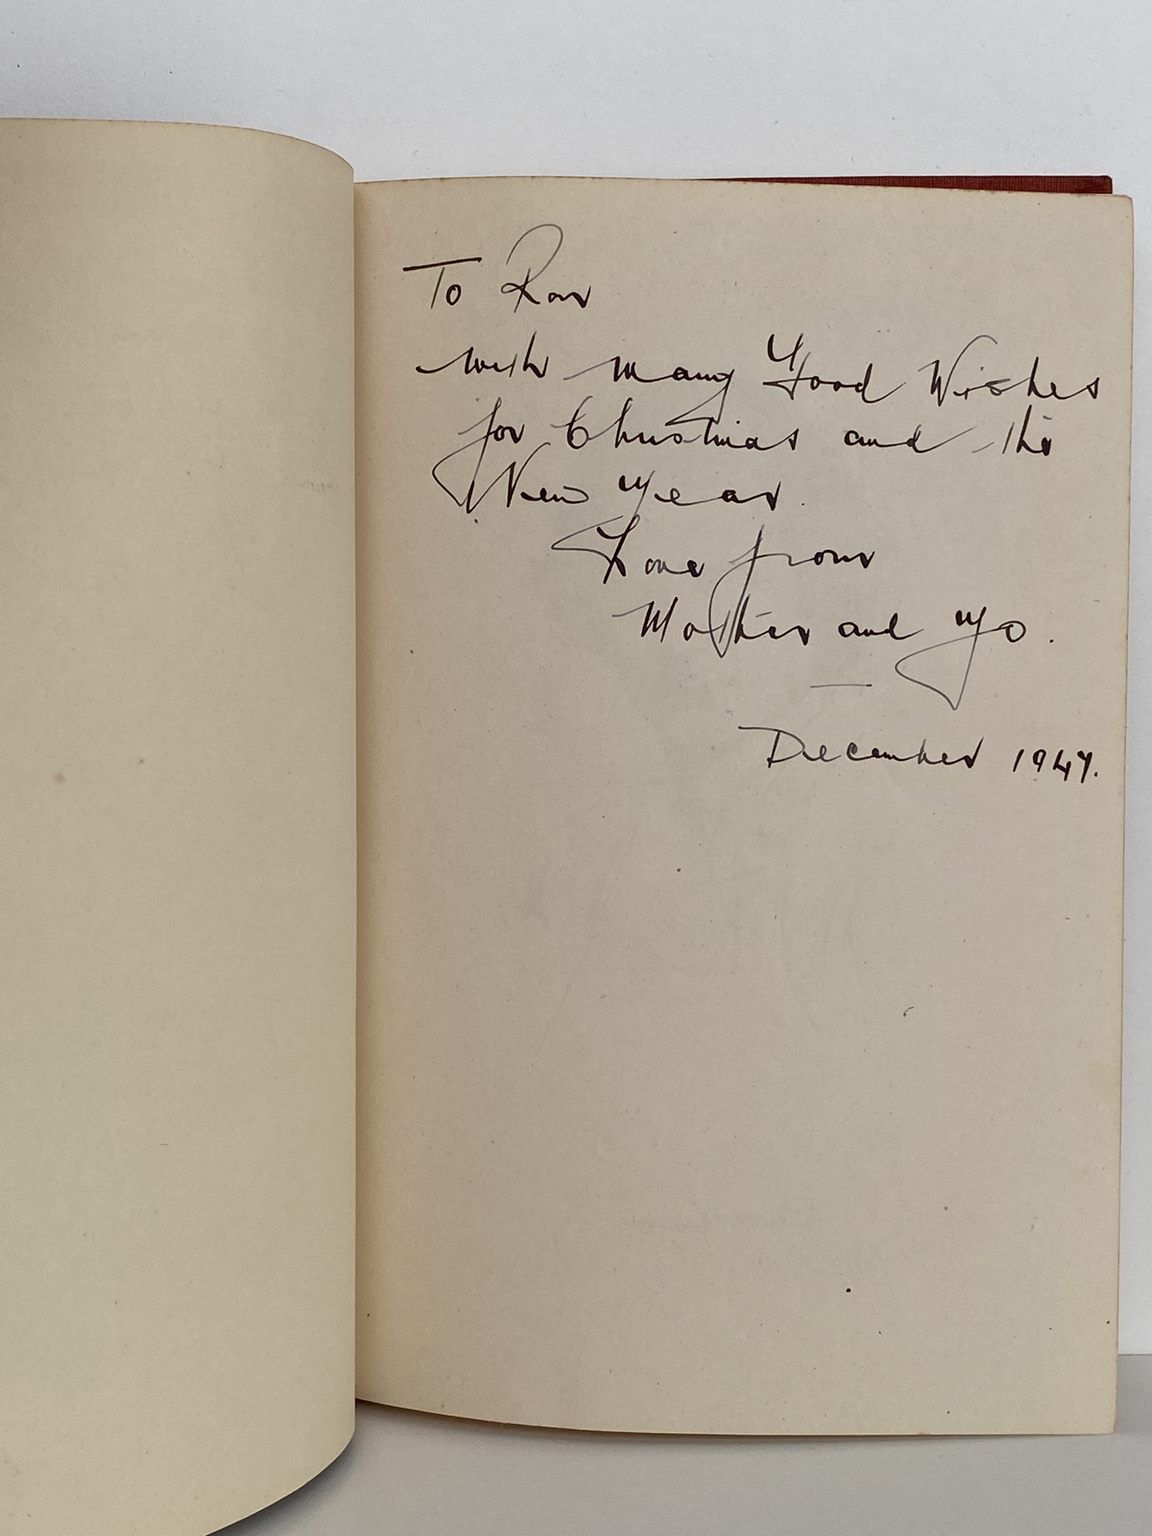 To Ron
with many Good Wishes
for Christmas and the
New Year.
Love from
Mother and Yo.
December 1947.